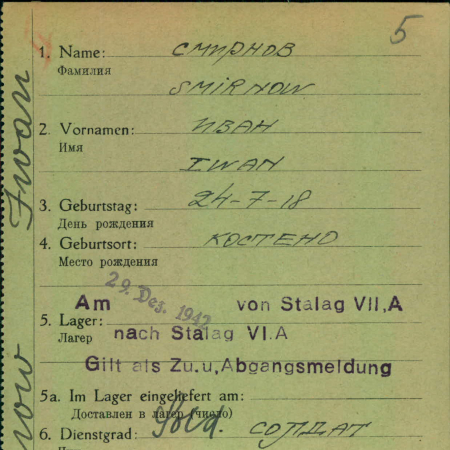 5
1. Name: СМИРНОВ
Фамилия
SMIRNOW
2. Vornamen: ИВАН
Имя
IWAN
3. Geburtstag: 24-7-18
День рождения
4. Geburtsort: КОСТЕНО
Место рождения
29. Dez. 1942
Am von Stalag VII,A
5. Lager: nach Stalag VI.A
Лагерь
Gilt als Zu.u,Abgangsmeldung
5a. Im Lager eingeliefert am:
Доставлен в лагерь (число)
6. Dienstgrad: Sold. СОЛДАТ
Iwan
now